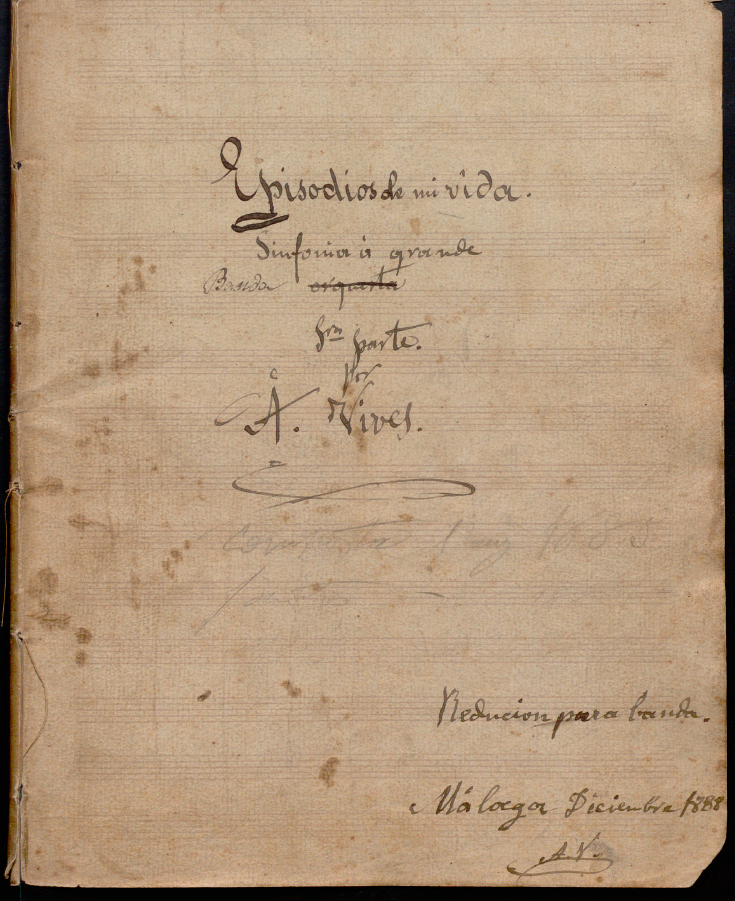 Episodios de mi vida.
Sinfonia á grande
Banda orquesta
1ra parte.
Por
A. Vives.
Reducion para banda.
Málaga Diciembre 1888
A. V.